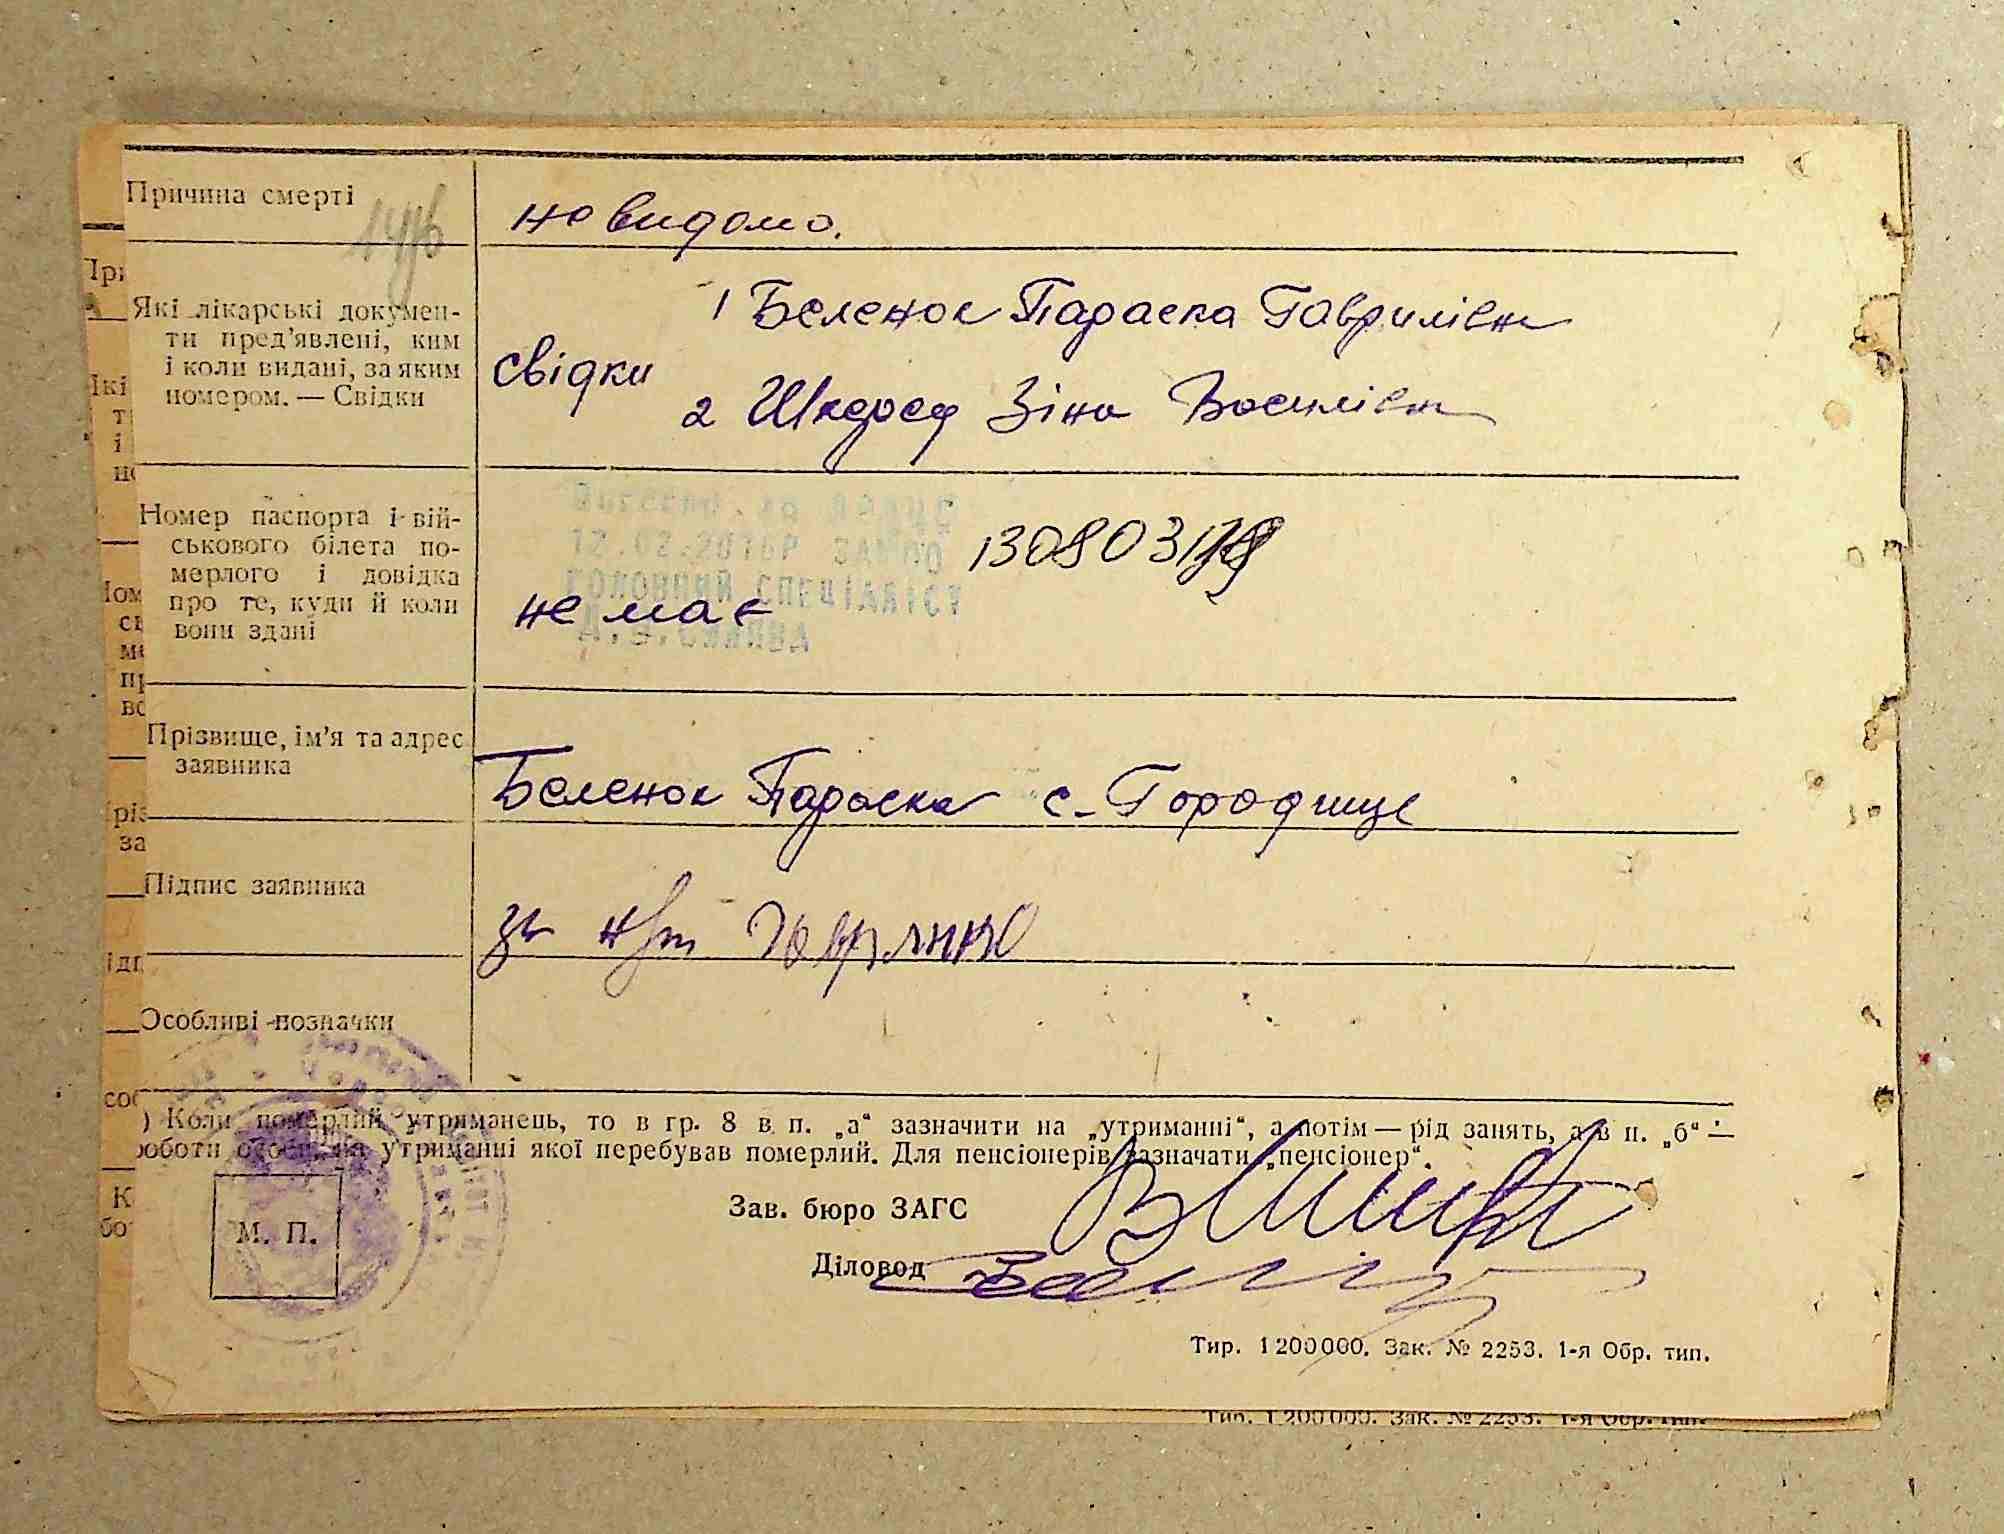 Причина смерті
не видомо.
Які лікарські докумен-
ти пред'явлені, ким
і коли видані, за яким
номером. — Свідки
свідки
1 Беленок Параска Гаврилієн
2 Шкород Зіна Василієн
Номер паспорта і вій-
ськового білета по-
мерлого і довідка
про те, куди й коли
вони здані
12.02.2016р
ГОЛОВНИЙ СПЕЦІАЛІСТ
130803
не має
Прізвище, ім'я та адрес
заявника
Беленок Параска с-Городище
Підпис заявника
за
Особливі позначки
) Коли померлий утриманець, то в гр. 8 в п. „а“ зазначити на „утриманні“, а потім — рід занять, а в п. „б“ —
роботи особи, на утриманні якої перебував померлий. Для пенсіонерів зазначати „пенсіонер“.
М. П.
Зав. бюро ЗАГС
Діловод
Тир. 1200000. Зак. № 2253. 1-я Обр. тип.
Тир. 1200000. Зак. № 2253. 1-я Обр. тип.